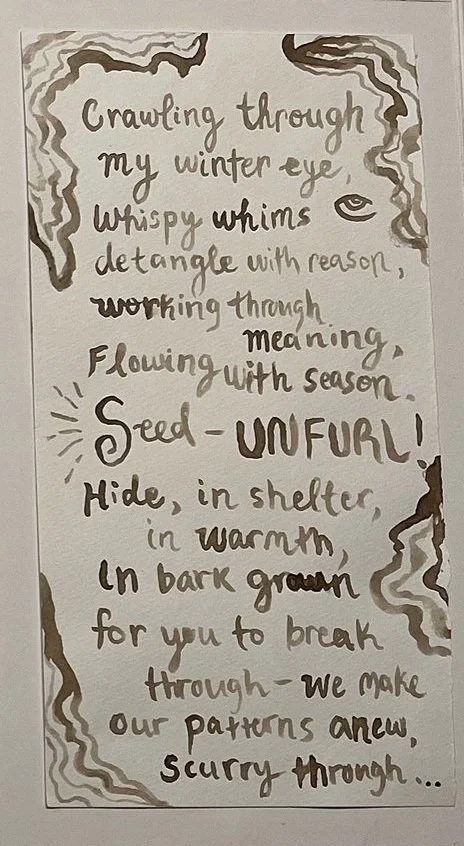 Crawling through
my winter eye,
Whispy whims
detangle with reason,
working through
meaning,
Flowing with season.
Seed - UNFURL!
Hide, in shelter,
in warmth,
In bark grown
for you to break
through - we make
our patterns anew,
Scurry through...